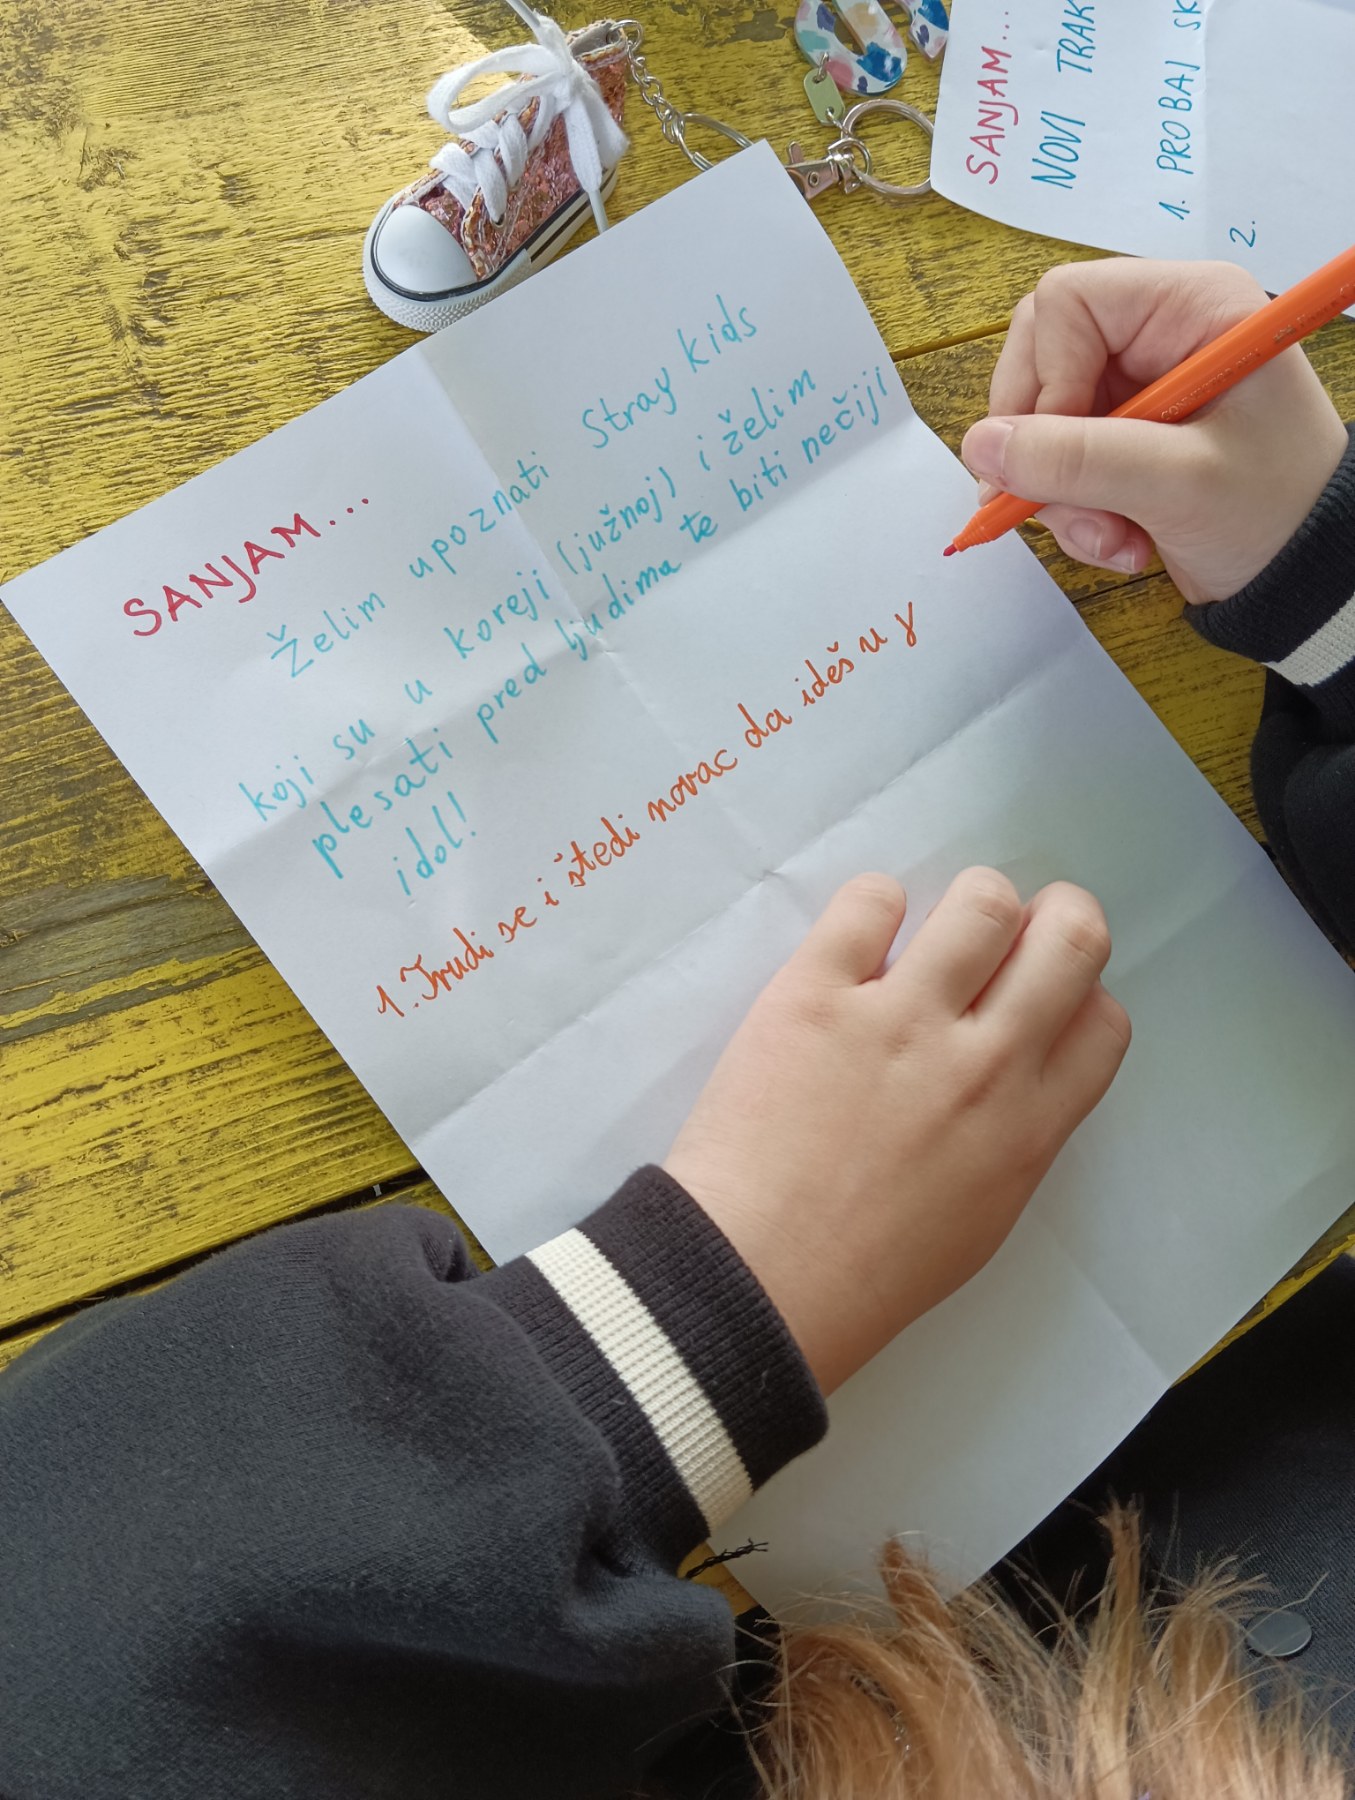 SANJAM...
Želim upoznati Stray kids
koji su u koreji (južnoj) i želim
plesati pred ljudima te biti nečiji
idol!
1. Trudi se i štedi novac da ideš u
SANJAM...
NOVI TRAK
1. PROBAJ SK
2.